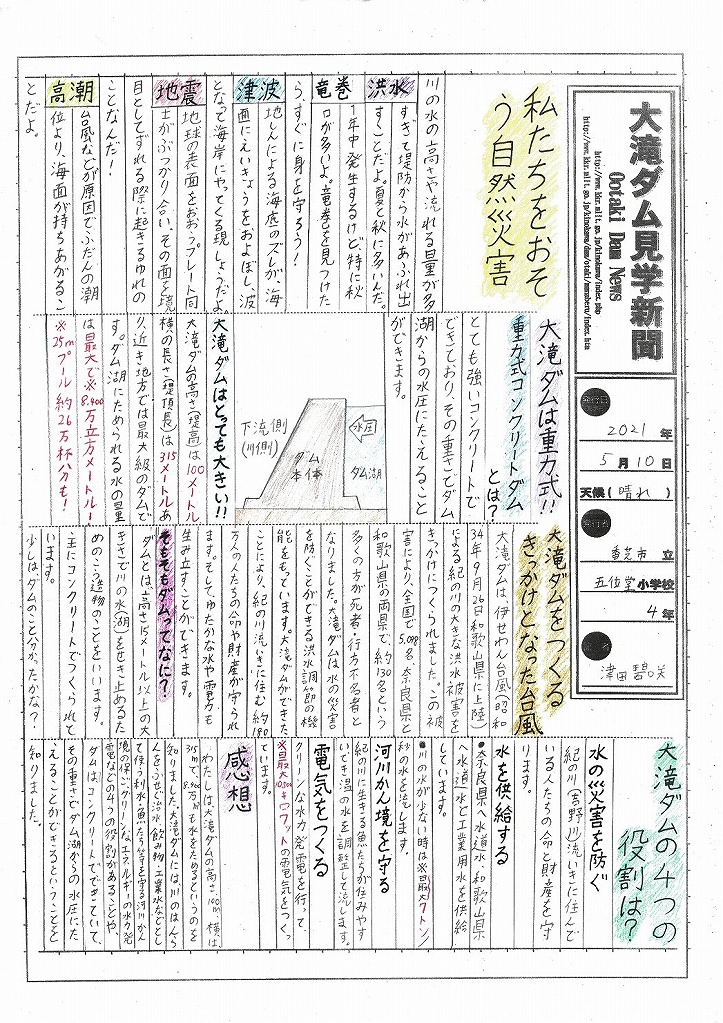 大滝ダム見学新聞
Ootaki Dam News
http://www.kkr.mlit.go.jp/kinokawa/index.php
発行日
2021年
5月10日
天候(晴れ)
香芝市立
五位堂小学校
4年
津田碧咲
私たちをおそ
う自然災害
洪水
川の水の高さや流れる量が多
すぎて堤防から水があふれ出
すことだよ。夏と秋に多いんだ。
竜巻
1年中発生するけど特に秋
口が多いよ。竜巻を見つけた
らすぐに身を守ろう!
津波
地しんによる海底のズレが海
面にえいきょうをおよぼし、波
となって海岸にやってくる現しょうだよ。
地震
地球の表面をおおうプレート同
士がぶつかり合い、その面を境
目としてずれる際に起きるゆれの
ことなんだ!
高潮
台風などが原因でふだんの潮
位より、海面が持ちあがるこ
とだよ。
大滝ダムは重力式!!
重力式コンクリートダム
とは?
とても強いコンクリートで
できており、その重さでダム
湖からの水圧にたえること
ができます。
水圧
ダム湖
ダム
本体
下流側
(川側)
大滝ダムはとっても大きい!!
大滝ダムの高さ(堤高)は100メートル
横の長さ(堤頂長)は315メートルあ
り、近き地方では最大級のダムで
す。ダム湖にためられる水の量
は最大で※8,400万立方メートル!
※25mプール 約26万杯分も!
大滝ダムをつくる
きっかけとなった台風
大滝ダムは伊せわん台風(昭和
34年9月26日和歌山県に上陸)
による紀の川の大きな洪水被害を
きっかけにつくられました。この被
害により、全国で5,098名、奈良県と
和歌山県の両県で、約130名という
多くの方が死者・行方不名者と
なりました。大滝ダムは水の災害
を防ぐことができる洪水調節の機
能をもっています。大滝ダムができた
ことにより、紀の川流いきに住む約180
万人の人たちの命や財産が守られ
ます。そして、ゆたかな水や電力も
生み立すことができます。
そもそもダムってなに?
ダムとは、高さ15メートル以上の大
きさで川の水(湖)をせき止めるた
めのこう造物のことをいいます。
主にコンクリートでつくられて
います。
少しはダムのこと分かったかな?
大滝ダムの4つの
役割は?
水の災害を防ぐ
紀の川(吉野川)流いきに住んで
いる人たちの命と財産を守
ります。
水を供給する
●奈良県へ水道水・和歌山県
へ水道水や工業用水を供給
しています。
●川の水が少ない時は※最大7トン/
秒の水を流します。
河川かん境を守る
紀の川に生きる魚たちが住みやす
いてき温の水を調整して流します。
電気をつくる
クリーンな水力発電を行って、
※最大10,500キロワットの電気をつくっ
ています。
感想
わたしは大滝ダムの高さ100m、横は
315mで、8,400万m³も水をためるというのを
知りました。大滝ダムには川のはんら
んをふせぐ治水、飲み物・工業水などとし
て使う利水、魚たち等を守る河川かん
境の保全、クリーンなエネルギーの水力発
電などの4つの役割があることや、
ダムは、コンクリートでできていて、
その重さでダム湖からの水圧にた
えることができるということを
知りました。